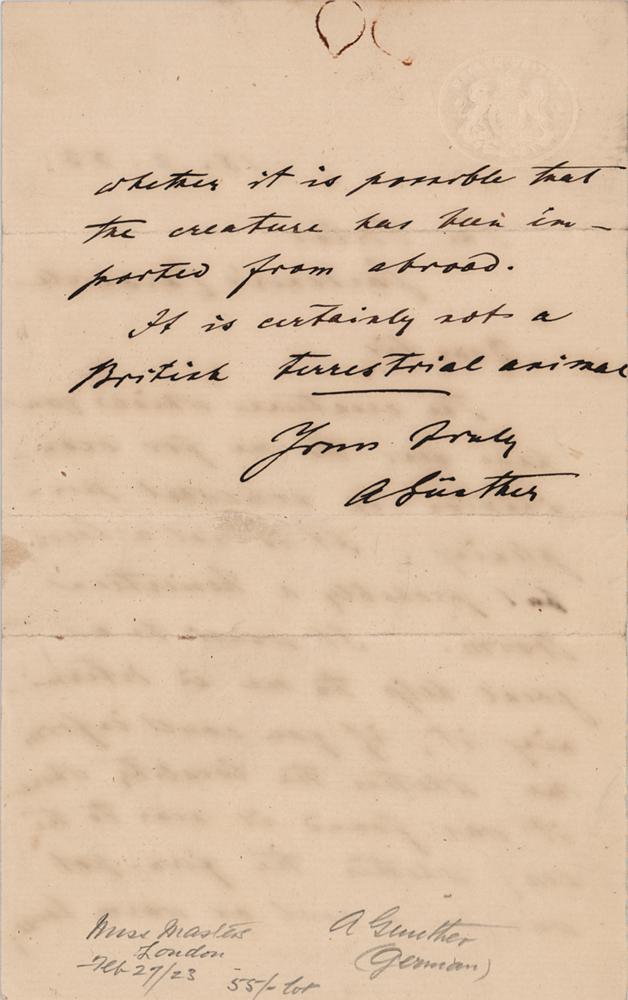 whether it is possible that
the creature has been im-
ported from abroad.
It is certainly not a
British terrestrial animal
Yours truly
A Günther
Miss Masters
London
Feb 27/23
55/- lot
A Gunther
(German)